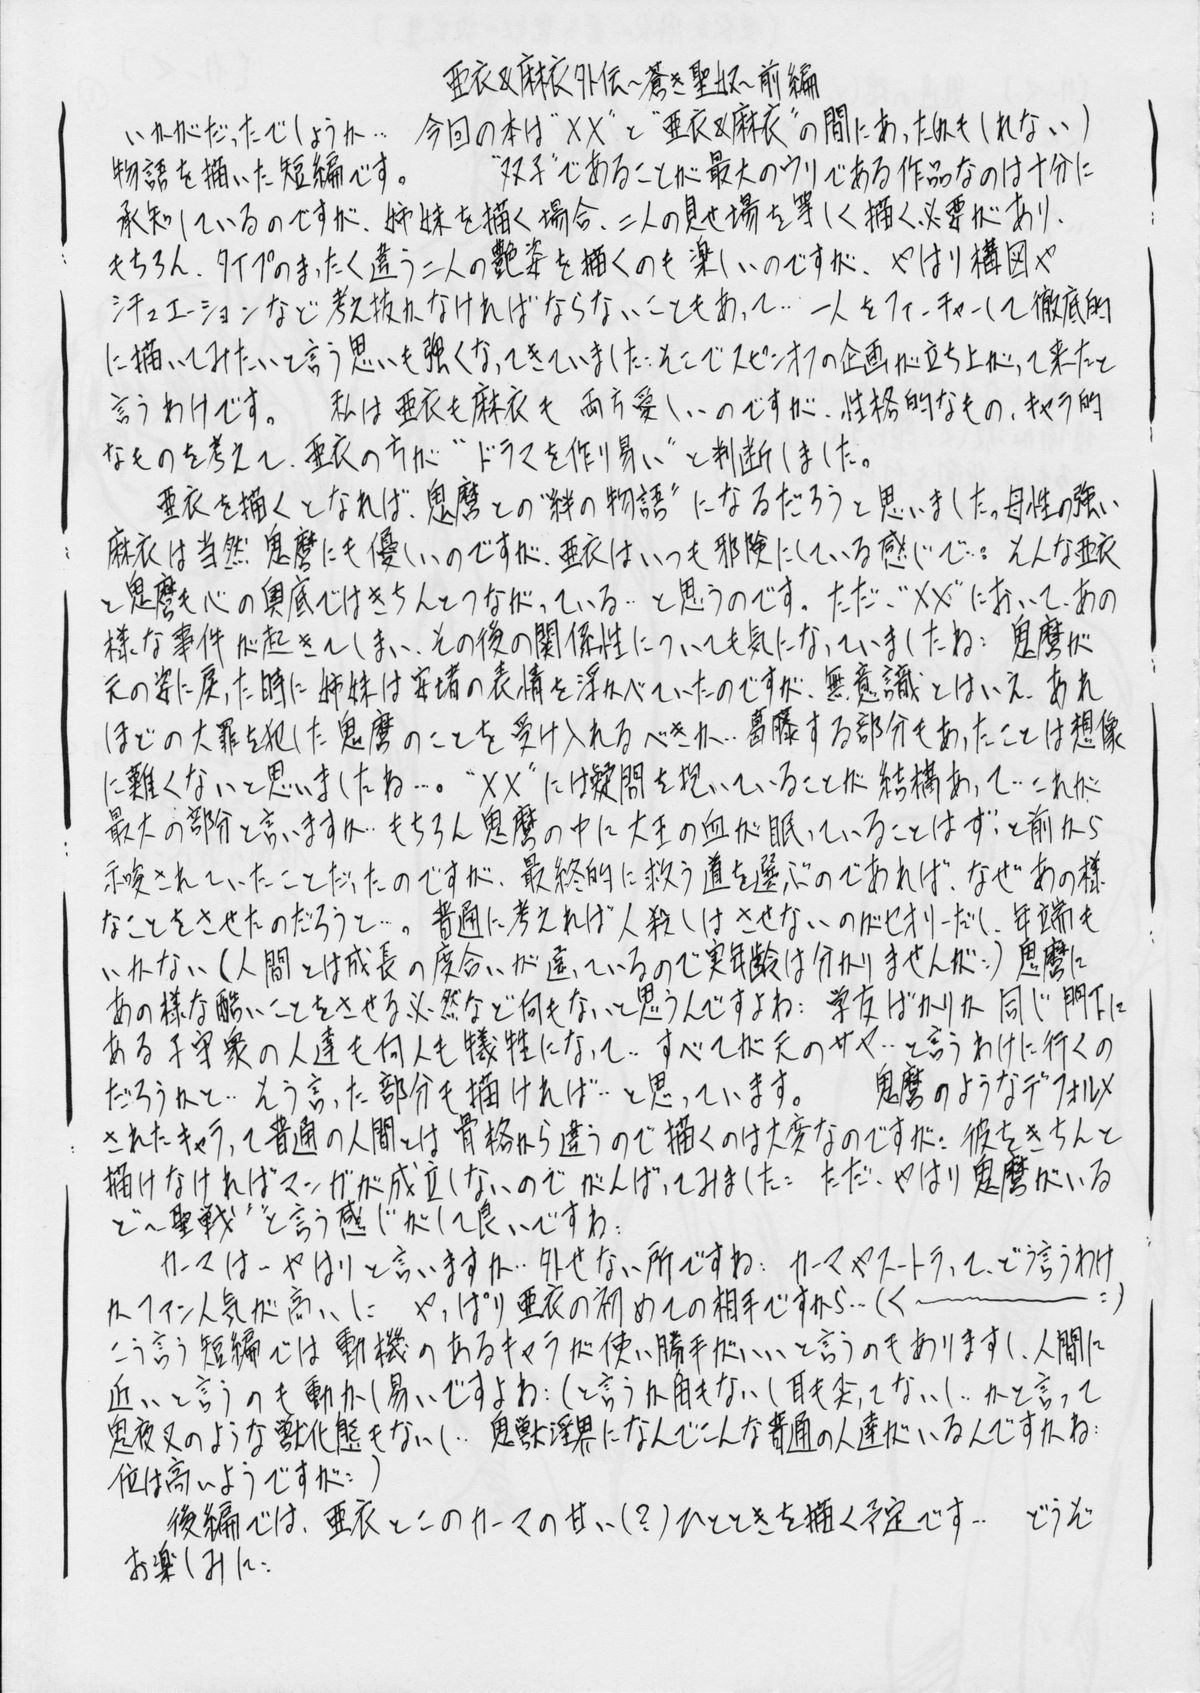 亜衣&麻衣外伝～蒼き聖奴～前編
いかがだったでしょうか… 今回の本は"XX"と"亜衣&麻衣"の間にあったかもしれない)
物語を描いた短編です。 "双子"であることが最大のウリである作品なのは十分に
承知しているのですが、姉妹を描く場合、二人の見せ場を等しく描く必要があり、
もちろん、タイプのまったく違う二人の艶姿を描くのも楽しいのですが、やはり構図や
シチュエーションなど考え抜かなければならないこともあって… 一人をフィーチャーして徹底的
に描いてみたいと言う思いも強くなってきていました…そこでスピンオフの企画が立ち上がって来たと
言うわけです。 私は亜衣も麻衣も両方愛しいのですが、性格的なもの、キャラ的
なものを考えて、亜衣の方が"ドラマを作り易い"と判断しました。
亜衣を描くとなれば、鬼麿との"絆の物語"になるだろうと思いました。母性の強い
麻衣は当然鬼麿にも優しいのですが、亜衣はいつも邪険にしている感じで…。そんな亜衣
と鬼麿も心の奥底ではきちんとつながっている…と思うのです。ただ、"XX"において、あの
様な事件が起きてしまい、その後の関係性についても気になっていましたね… 鬼麿が
元の姿に戻った時に姉妹は安堵の表情を浮かべていたのですが、無意識とはいえ、あれ
ほどの大罪を犯した鬼麿のことを受け入れるべきか…葛藤する部分もあったことは想像
に難くないと思いましたね…。"XX"には疑問を抱いていることが結構あって…これが
最大の部分と言いますか…もちろん鬼麿の中に大王の血が眠っていることはずっと前から
示唆されていたことだったのですが、最終的に救う道を選ぶのであれば、なぜあの様
なことをさせたのだろうと…。普通に考えれば人殺しはさせないのがセオリーだし、年端も
いかない(人間とは成長の度合いが違っているので実年齢は分かりませんが…)鬼麿に
あの様な酷いことをさせる必然など何もないと思うんですよね… 学友ばかりか同じ門下に
ある子守衆の人達も何人も犠牲になって… すべてが元のサヤ…と言うわけに行くの
だろうかと… そう言った部分も描ければ…と思っています。 鬼麿のようなデフォルメ
されたキャラって普通の人間とは骨格から違うので描くのは大変なのですが… 彼をきちんと
描けなければマンガが成立しないのでがんばってみました… ただ、やはり鬼麿がいる
と"～聖戦"と言う感じがして良いですね…
カーマは～やはりと言いますか…外せない所ですね… カーマやスートラって、どう言うわけ
かファン人気が高いし やっぱり亜衣の初めての相手ですから…(く～…)
こう言う短編では動機のあるキャラが使い勝手がいいと言うのもありますし、人間に
近いと言うのも動かし易いですよね…(と言うか角もないし耳も尖ってないし… かと言って
鬼夜叉のような獣化態もないし… 鬼獣淫界になんでこんな普通の人達がいるんですかね…
位は高いようですが…)
後編では、亜衣とこのカーマの甘い(?)ひとときを描く予定です… どうぞ
お楽しみに…